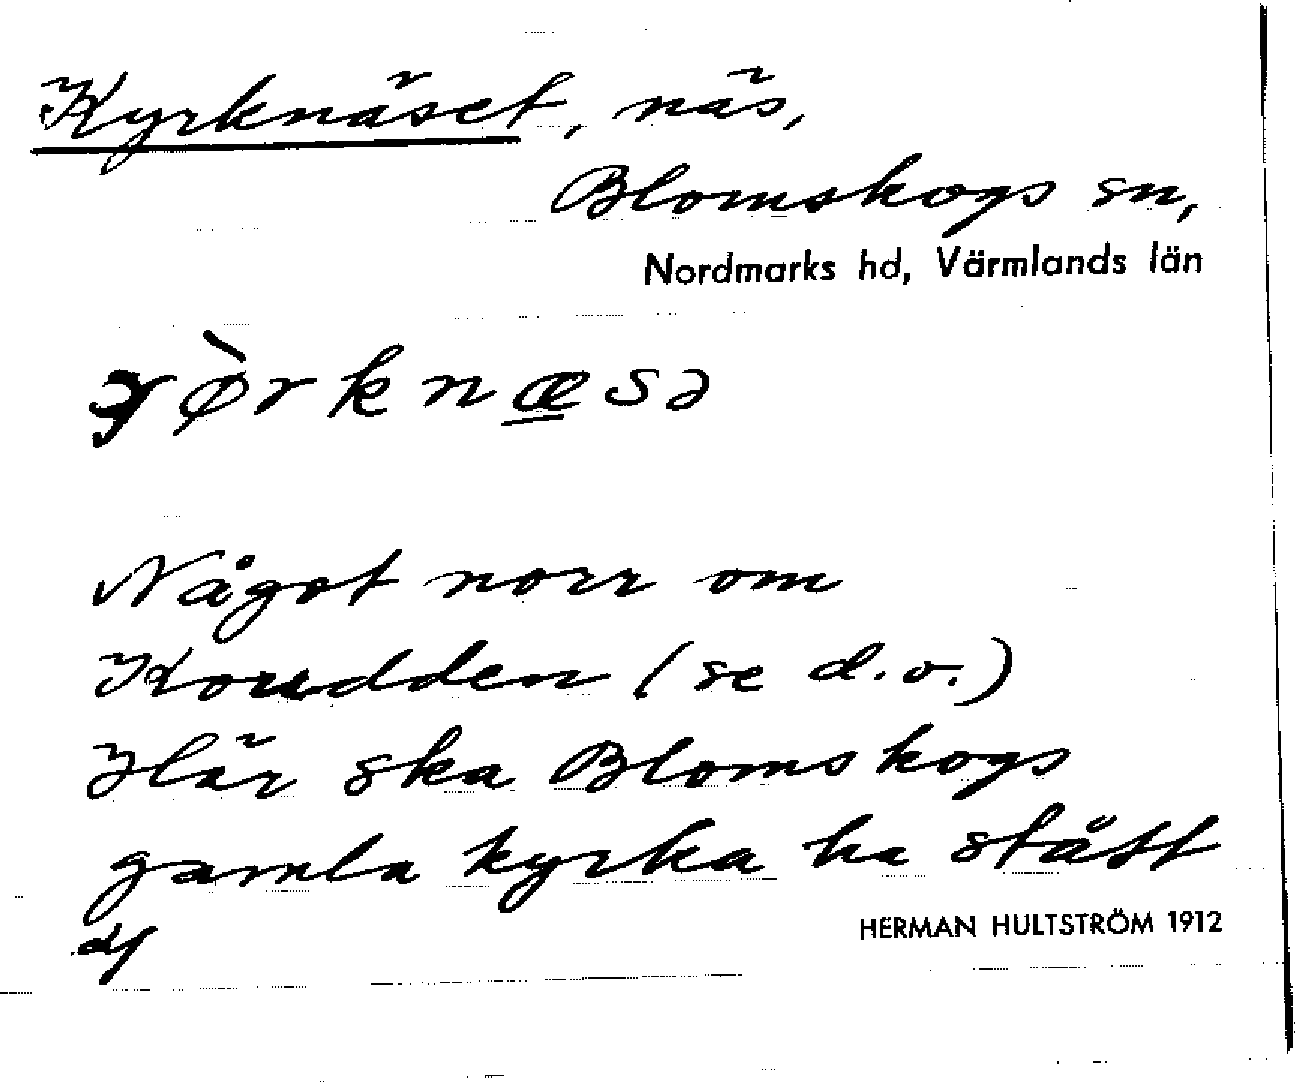 Kyrknäset, näs,
Blomskogs sn,
Nordmarks hd, Värmlands län
Något norr om
Korudden (se d.o.)
Här ska Blomskogs
gamla kyrka ha stått
HERMAN HULTSTRÖM 1912